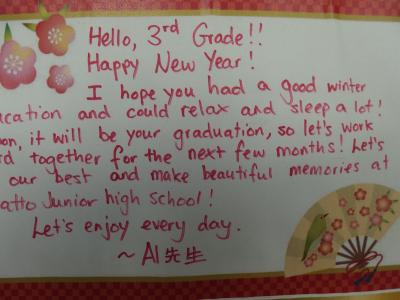 Hello, 3rd Grade!!
Happy New Year!
I hope you had a good winter
and could relax and sleep a lot!
it will be your graduation, so let's work
together for the next few months! Let's
our best and make beautiful memories at
Junior high school!
Let's enjoy every day.
~ Al 先生